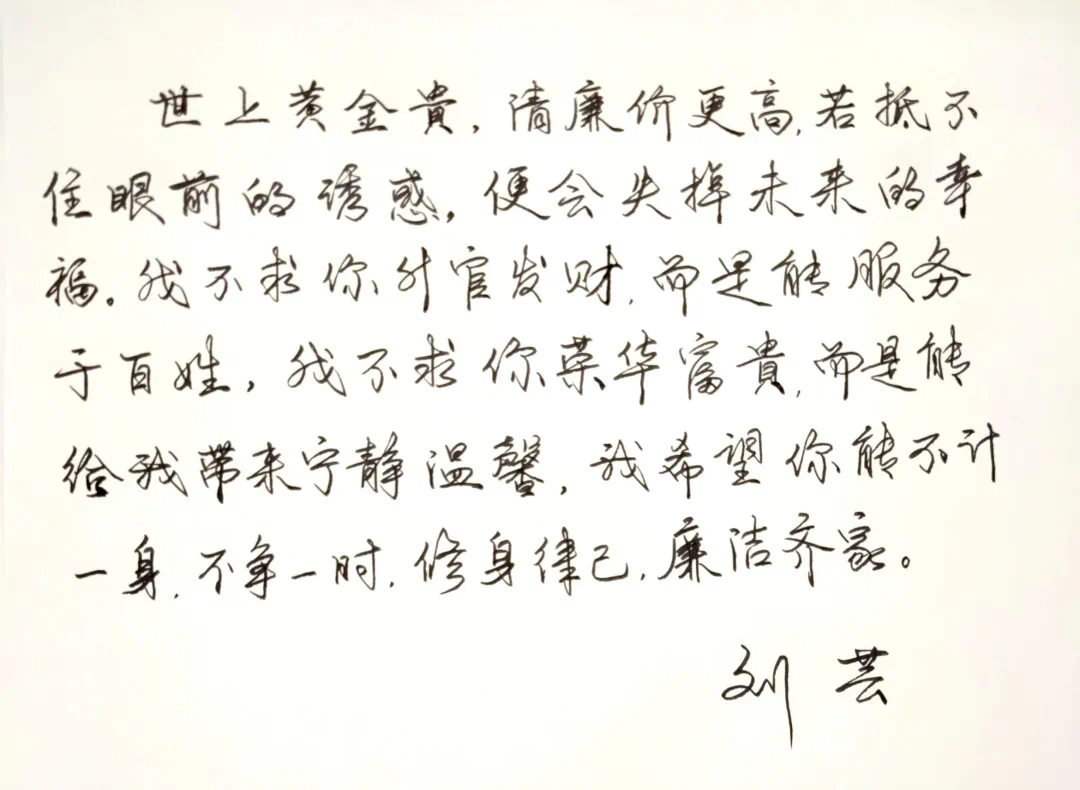 世上黄金貴，清廉价更高，若抵不
住眼前的诱惑，便会失掉未来的幸
福。我不求你升官发财，而是能服务
于百姓，我不求你荣华富貴，而是能
给我带来宁静温馨，我希望你能不计
一身，不争一时，修身律己，廉洁齐家。
刘芸